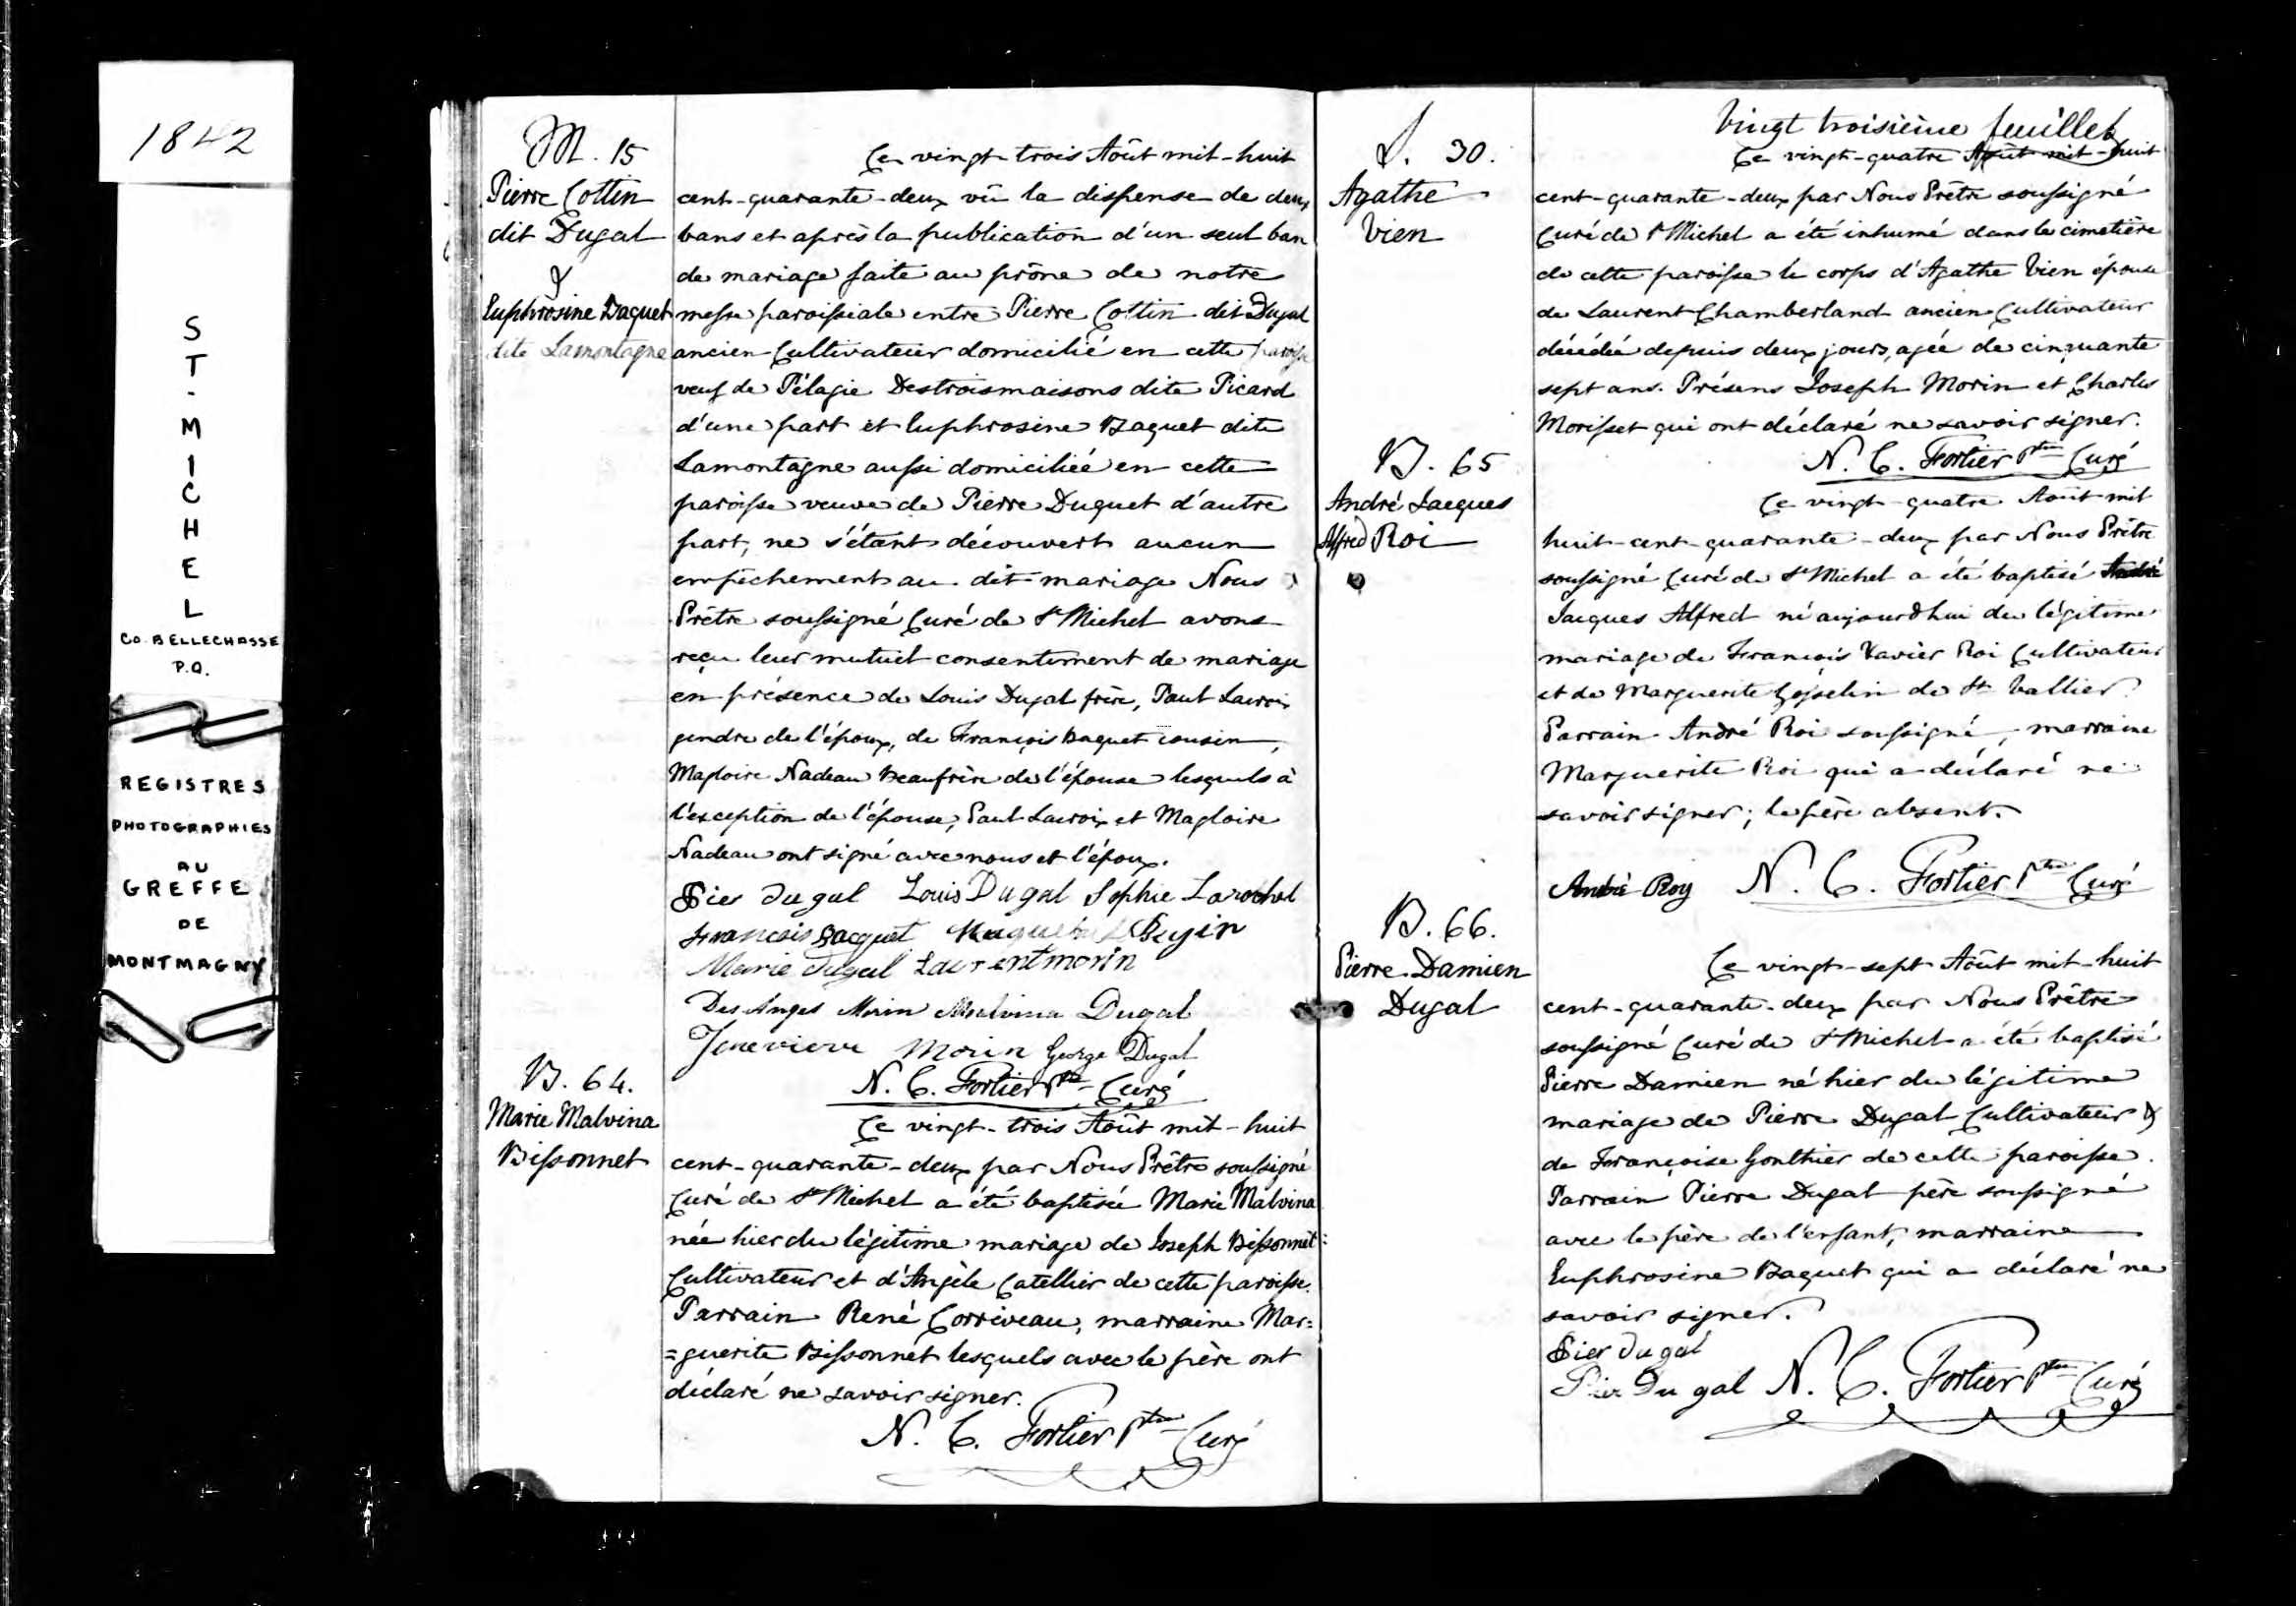 1842
ST-MICHEL
CO. BELLECHASSE
P.Q.
REGISTRES
PHOTOGRAPHIES
AU
GREFFE
DE
MONTMAGNY
M. 15
Pierre Cottin
dit Dugal
&
Euphrosine Baquet
dite Lamontagne
Ce vingt-trois Août mil-huit
cent-quarante-deux vû la dispense de deux
bans et après la publication d'un seul ban
de mariage faite au prône de notre
messe paroissiale entre Pierre Cottin dit Dugal
ancien Cultivateur domicilié en cette paroisse
veuf de Pélagie Destroismaisons dite Picard
d'une part et Euphrosine Baquet dite
Lamontagne aussi domiciliée en cette
paroisse veuve de Pierre Duquet d'autre
part, ne s'étant découvert aucun
empêchement au dit mariage Nous
Prêtre soussigné Curé de St Michel avons
reçu leur mutuel consentement de mariage
en présence de Louis Dugal frère, Paul Lacroix
gendre de l'époux, de François Baquet cousin,
Magloire Nadeau Beaufrère de l'épouse lesquels à
l'exception de l'épouse, Paul Lacroix et Magloire
Nadeau ont signé avec nous et l'époux.
Pier dugal Louis Dugal Sophie Larochel
Francois Bacquet
Marie Dugal Laurent morin
Des Anges Morin Malvina Dugal
Jenevieve Morin George Dugal
N. C. Fortier Ptre Curé
B. 64.
Marie Malvina
Bissonnet
Ce vingt-trois Août mil-huit
cent-quarante-deux par Nous Prêtre soussigné
Curé de St Michel a été baptisée Marie Malvina
née hier du légitime mariage de Joseph Bissonnet
Cultivateur et d'Angèle Catellier de cette paroisse.
Parrain René Corriveau, marraine Mar=
=guerite Bissonnet lesquels avec le père ont
déclaré ne savoir signer.
N. C. Fortier Ptre Curé
Vingt troisième feuillet
S. 30.
Agathe
Vien
Ce vingt-quatre Août mil-huit
cent-quarante-deux par Nous Prêtre soussigné
Curé de St Michel a été inhumé dans le cimetière
de cette paroisse le corps d'Agathe Vien épouse
de Laurent Chamberland ancien Cultivateur
décédée depuis deux jours, agée de cinquante
sept ans. Présens Joseph Morin et Charles
Morisset qui ont déclaré ne savoir signer.
N. C. Fortier Ptre Curé
B. 65
André Jacques
Alfred Roi
Ce vingt-quatre Août mil
huit-cent-quarante-deux par Nous Prêtre
soussigné Curé de St Michel a été baptisé André
Jacques Alfred né aujourdhui du légitime
mariage de François Xavier Roi Cultivateur
et de Marguerite Gosselin de St Vallier.
Parrain André Roi soussigné, marraine
Marguerite Roi qui a déclaré ne
savoir signer; le père absent.
André Roy N. C. Fortier Ptre Curé
B. 66.
Pierre Damien
Dugal
Ce vingt-sept Août mil-huit
cent-quarante-deux par Nous Prêtre
soussigné Curé de St Michel a été baptisé
Pierre Damien né hier du légitime
mariage de Pierre Dugal Cultivateur &
de Françoise Gonthier de cette paroisse.
Parrain Pierre Dugal père soussigné
avec le père de l'enfant, marraine
Euphrosine Baquet qui a déclaré ne
savoir signer.
Pier dugal
Pier Du gal N. C. Fortier Ptre Curé